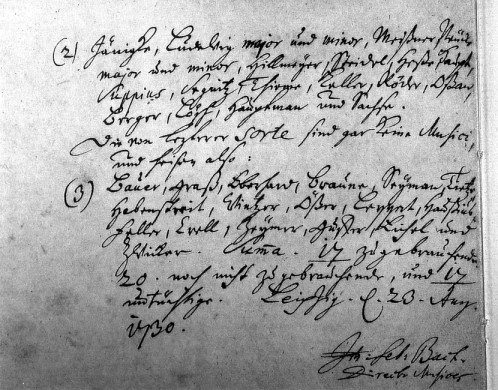 (2) Jänigke, Ludewig major und minor, Meißner, Neucke
major und minor, Hillmeyer, Steidel, Heße, Haupt,
Suppius, Segnitz, Thieme, Keller, Röder, Oßan,
Berger, Lösch, Hauptman und Sachse.
Die von letzterer sorte sind gar keine Musici,
und heißen also:
(3) Bauer, Graß, Eberhard, Braune, Seyman, Tietze,
Hebenstreit, Wintzer, Ößer, Leppert, Haußius,
Feller, Crell, Zeymer, Guffer, Eichel und
Zwicker. Summa. 17 zu gebrauchende,
20. noch nicht zu gebrauchende, und 17
untüchtige. Leipzig. d. 23. Aug.
1730.
Joh: Seb: Bach.
Director Musices